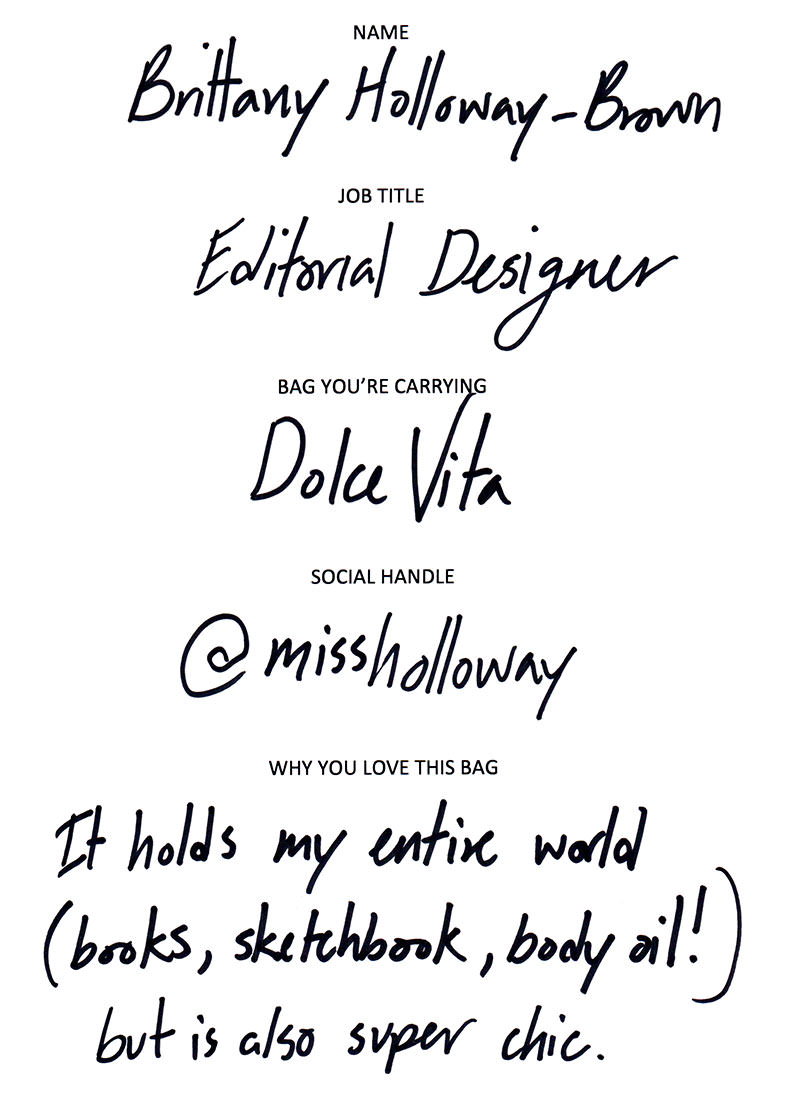 NAME
Brittany Holloway-Brown
JOB TITLE
Editorial Designer
BAG YOU'RE CARRYING
Dolce Vita
SOCIAL HANDLE
@missholloway
WHY YOU LOVE THIS BAG
It holds my entire world
(books, sketchbook, body oil!)
but is also super chic.